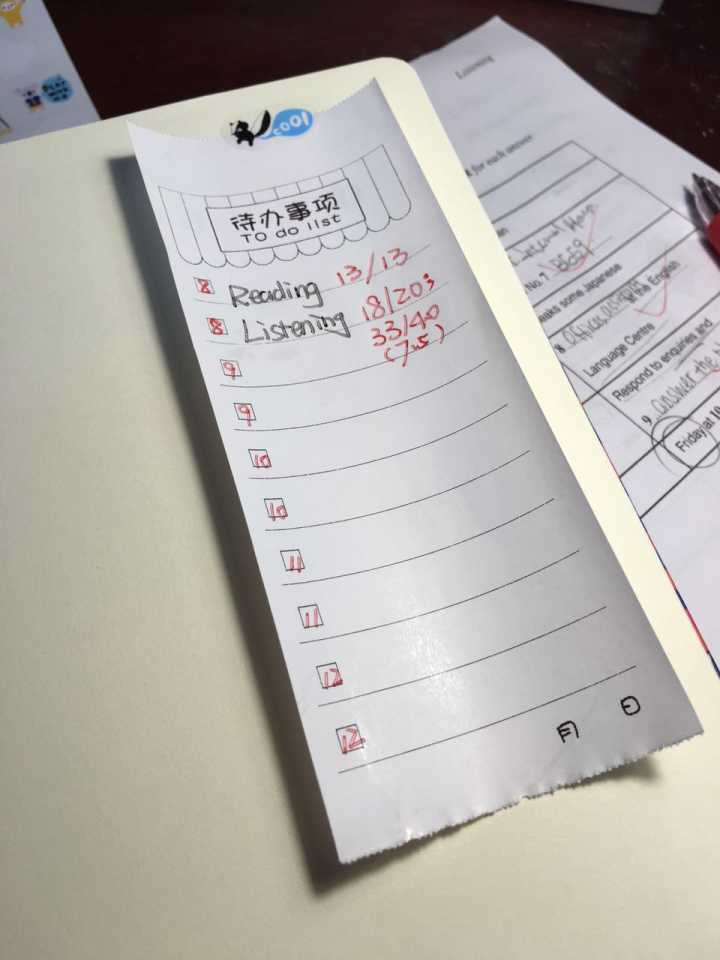 COOl
待办事项
TO do list
8 Reading 13/13
8 Listening 18/20
33/40
(7.5)
9
9
10
10
11
11
12
12
月 日
Listening
for each answer
No. 7 8659
some Japanese
8
English
Language Centre
Respond to enquiries and
9 answer the
Friday at